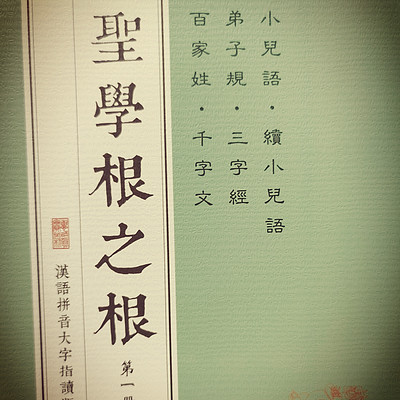 小兒語·續小兒語
弟子規·三字經
百家姓·千字文
聖學根之根
第一
漢語拼音大字指讀